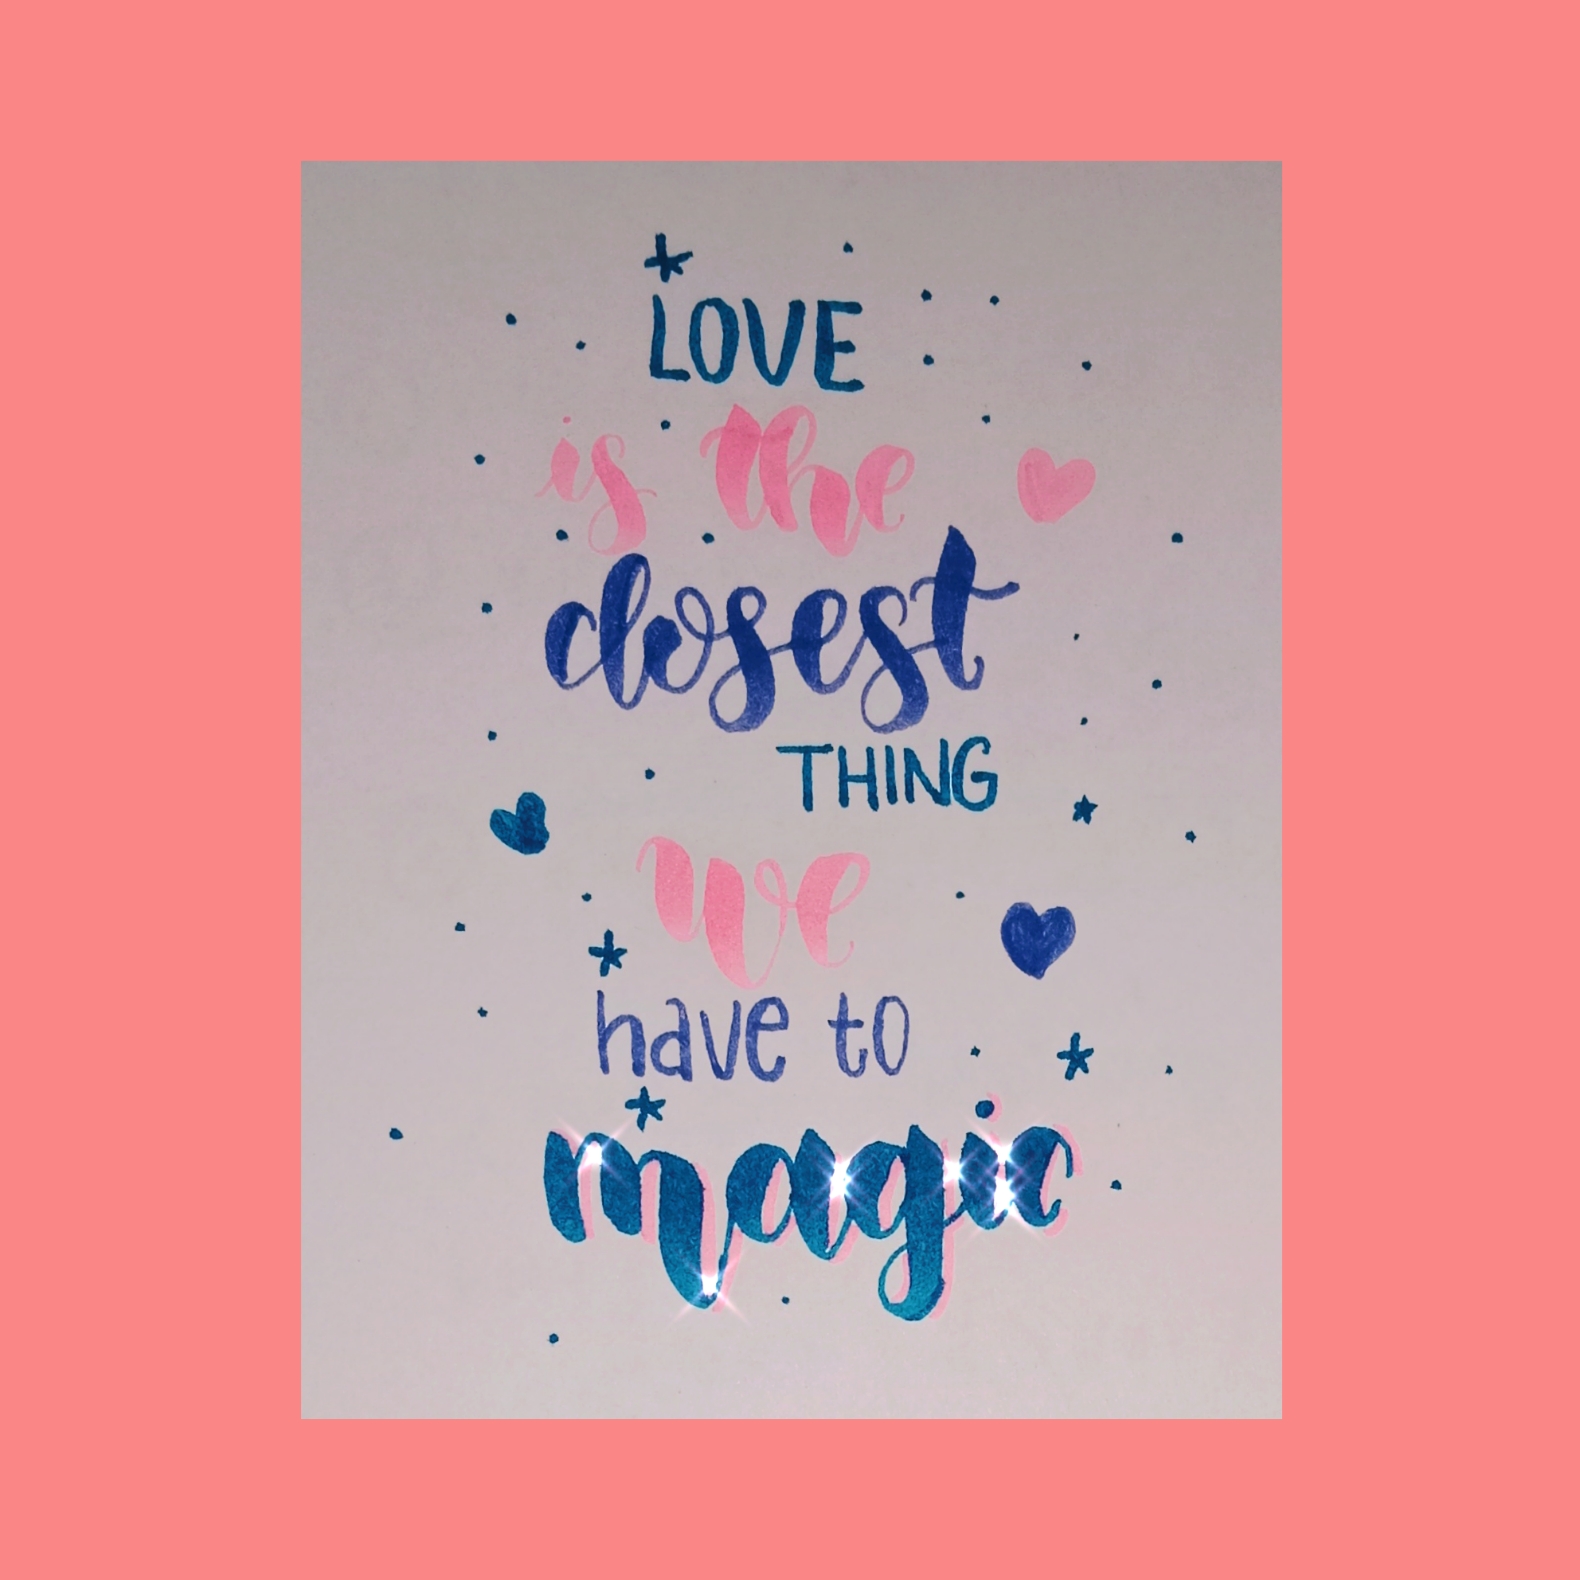 LOVE
is the
closest
THING
we
have to
magic